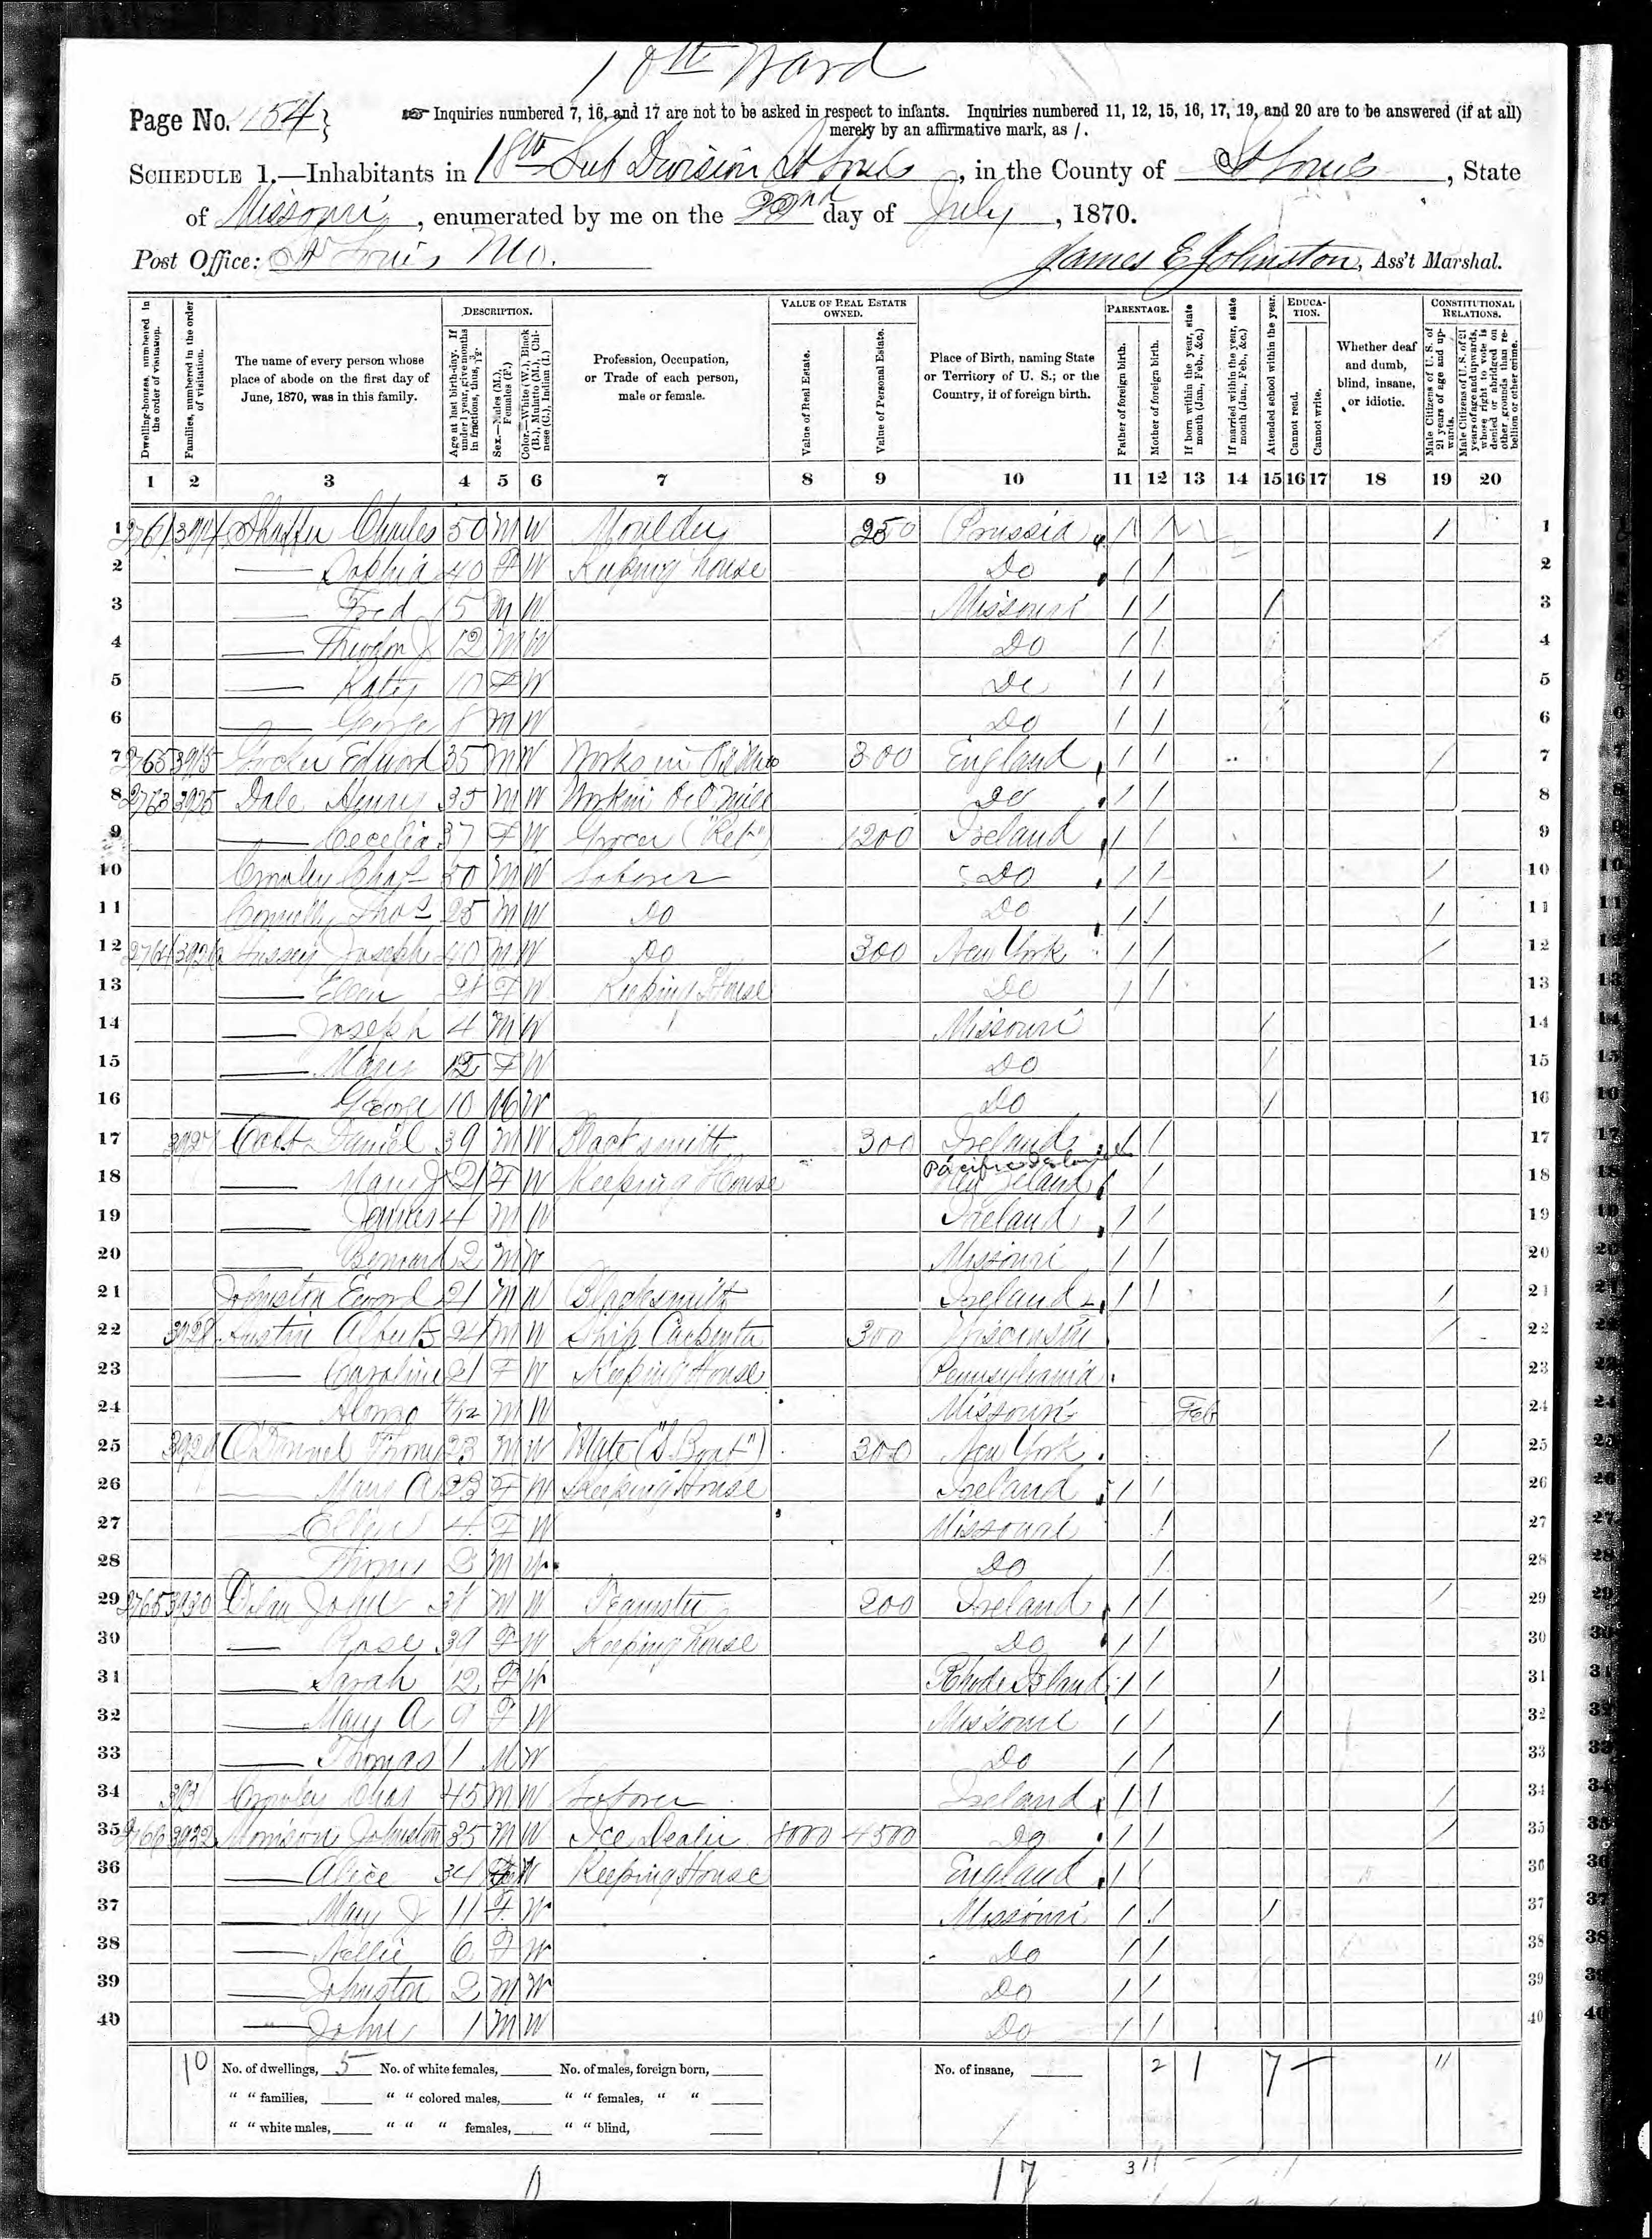 10th Ward
Page No. 154
☞ Inquiries numbered 7, 16, and 17 are not to be asked in respect to infants. Inquiries numbered 11, 12, 15, 16, 17, 19, and 20 are to be answered (if at all)
merely by an affirmative mark, as /.
SCHEDULE 1.—Inhabitants in 18th Sub Division St Louis, in the County of St Louis, State
of Missouri, enumerated by me on the 22nd day of July, 1870.
Post Office: St Louis Mo.
James E Johnston, Ass't Marshal.
Dwelling-houses, numbered in the order of visitation.
Families, numbered in the order of visitation.
The name of every person whose place of abode on the first day of June, 1870, was in this family.
DESCRIPTION.
Age at last birth-day. If under 1 year, give months in fractions, thus, 3/12.
Sex.—Males (M.), Females (F.)
Color.—White (W.), Black (B.), Mulatto (M.), Chinese (C.), Indian (I.)
Profession, Occupation, or Trade of each person, male or female.
VALUE OF REAL ESTATE OWNED.
Value of Real Estate.
Value of Personal Estate.
Place of Birth, naming State or Territory of U. S.; or the Country, if of foreign birth.
PARENTAGE.
Father of foreign birth.
Mother of foreign birth.
If born within the year, state month (Jan., Feb., &c.)
If married within the year, state month (Jan., Feb., &c.)
Attended school within the year.
EDUCATION.
Cannot read.
Cannot write.
Whether deaf and dumb, blind, insane, or idiotic.
CONSTITUTIONAL RELATIONS.
Male Citizens of U. S. of 21 years of age and upwards.
Male Citizens of U. S. of 21 years of age and upwards, whose right to vote is denied or abridged on other grounds than rebellion or other crime.
1 2 3 4 5 6 7 8 9 10 11 12 13 14 15 16 17 18 19 20
1 Charles 50 M W Moulder 250 Prussia / / / 1
2 — Sophia 40 F W Keeping house Do / / 2
3 — Fred 15 M W Missouri / / / 3
4 — J 12 M W Do / / 4
5 — Katy 10 F W Do / / 5
6 — George 8 M W Do / / 6
7 2765 3915 35 M W Works in 300 England / / / 7
8 2763 3925 Dale Henry 35 M W Mill Do / / 8
9 — Cecelia 37 F W Grocer ("Ret") 1200 Ireland / / 9
10 Crowley Chas 50 M W Laborer Do / / / 10
11 Connelly Thos 25 M W Do Do / / / 11
12 2764 3926 Hussey Joseph 40 M W Do 300 New York / / / 12
13 — Ellen F W Keeping House Do / / 13
14 — Joseph 4 M W Missouri / 14
15 — Mary 12 F W Do / 15
16 — George 10 M W Do / 16
17 3927 Daniel 39 M W Blacksmith 300 Ireland / / 17
18 — Mary J 21 F W Keeping House Pacific / / 18
19 — James 4 M W Ireland / / 19
20 — Bernard 2 M W Missouri / / 20
21 Johnston 21 M W Blacksmith Ireland / / / 21
22 3928 Austin M W Ship Carpenter 300 Wisconsin / 22
23 — Caroline 21 F W Keeping House Pennsylvania 23
24 Alonzo 4/12 M W Missouri Feb 24
25 3929 O'Donnel 23 M W Mate ("S. Boat") 300 New York / 25
26 — Mary A 23 F W Keeping House Ireland / / 26
27 — Ellen 4 F W Missouri / 27
28 M W Do / 28
29 2765 3930 Dolan John M W Teamster 200 Ireland / / / 29
30 — Rose 39 F W Keeping house Do / / 30
31 — Sarah 12 F W Rhode Island / / / 31
32 — Mary A 9 F W Missouri / / / 32
33 — Thomas 1 M W Do / / 33
34 3931 Crowley Chas 45 M W Laborer Ireland / / / 34
35 2766 3932 Morrison Johnston 35 M W Ice Dealer 8000 4500 Do / / / 35
36 — Alice 34 F W Keeping House England / / 36
37 — Mary J 11 F W Missouri / / / 37
38 — Nellie 6 F W Do / / 38
39 — Johnston 3 M W Do / / 39
40 — John 1 M W Do / / 40
10 No. of dwellings, 5 No. of white females, No. of males, foreign born, No. of insane, 2 1 7 11
" " families, " " colored males, " " females, " "
" " white males, " " " females, " " blind,
17 3